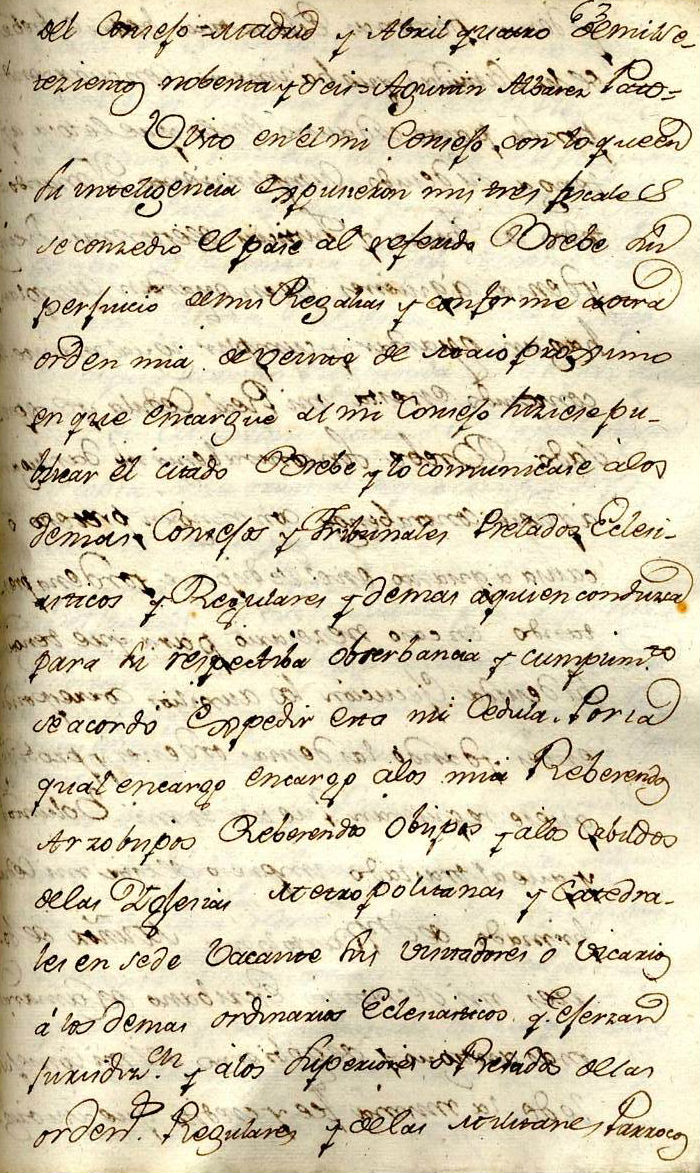 del Consejo = Madrid y Abril quatro de mil se-
tezientos nobenta y seis = Agustin Albarez Pato =
Visto en el mi Consejo con lo que en
su inteligencia expusieron mis tres fiscales
se conzedio el pase al referido Brebe sin
perjuicio de mis Regalias y conforme a otra
orden mia de veinte de Maio proximo
en que encargue al mi Consejo hiziese pu-
blicar el citado Brebe y lo comunicase à los
demas Consejos y Tribunales Prelados Eclesi-
asticos y Regulares y demas a quien conduzca
para su respectiba obserbancia y cumpim.to
se acordo expedir esta mi Cedula. Por la
qual encargo encargo a los mui Reberendos
Arzobispos Reberendos Obispos y a los Cabildos
de las Yglesias Metropolitanas y Catedra-
les en sede Vacante sus visitadores o vicarios
á los demas ordinarios Eclesiasticos q. ejerzan
jurisdiz.on y à los Superiores o Prelados de las
orden.s Regulares y de las Militares Parrocos